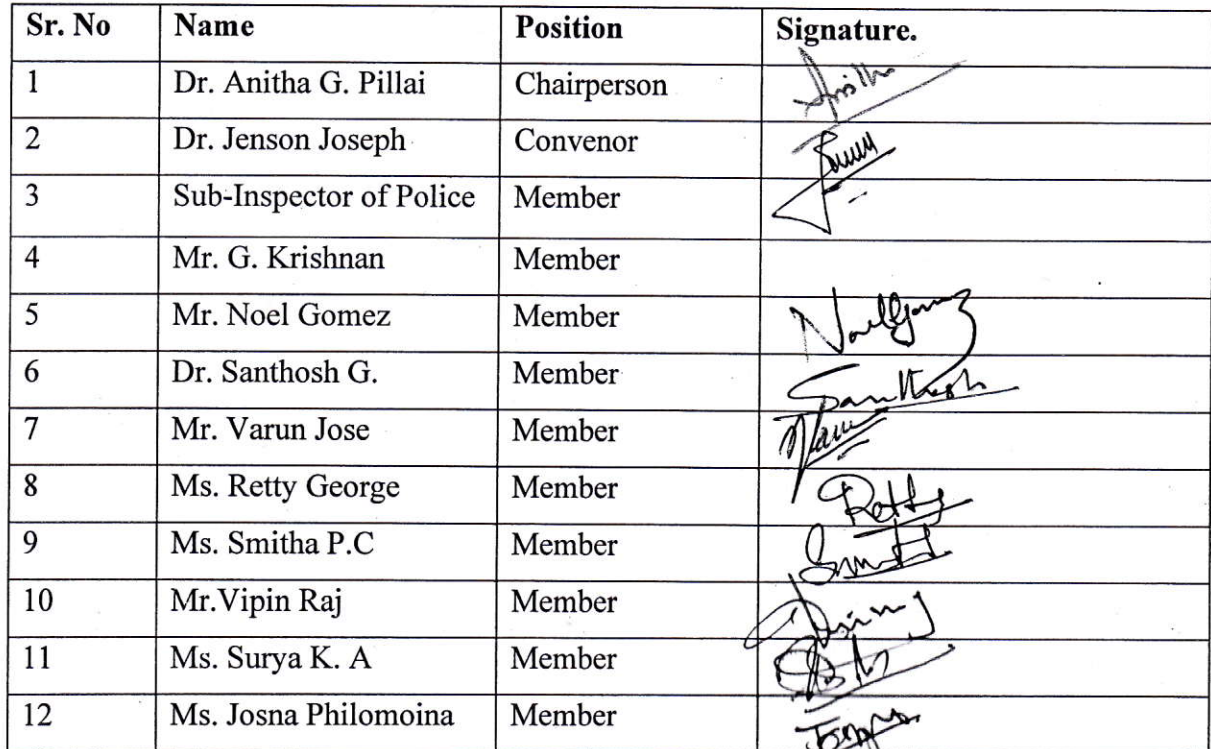 Sr. No Name Position Signature.
1 Dr. Anitha G. Pillai Chairperson Anitha
2 Dr. Jenson Joseph Convenor
3 Sub-Inspector of Police Member
4 Mr. G. Krishnan Member
5 Mr. Noel Gomez Member Noel Gomez
6 Dr. Santhosh G. Member Santhosh
7 Mr. Varun Jose Member
8 Ms. Retty George Member Retty
9 Ms. Smitha P.C Member
10 Mr.Vipin Raj Member
11 Ms. Surya K. A Member
12 Ms. Josna Philomoina Member